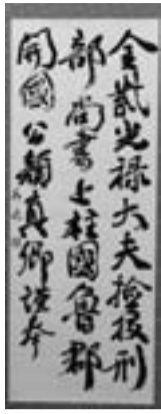 金紫光禄大夫檢挍刑
部尚書上柱國魯郡
開國公顔真卿謹奉